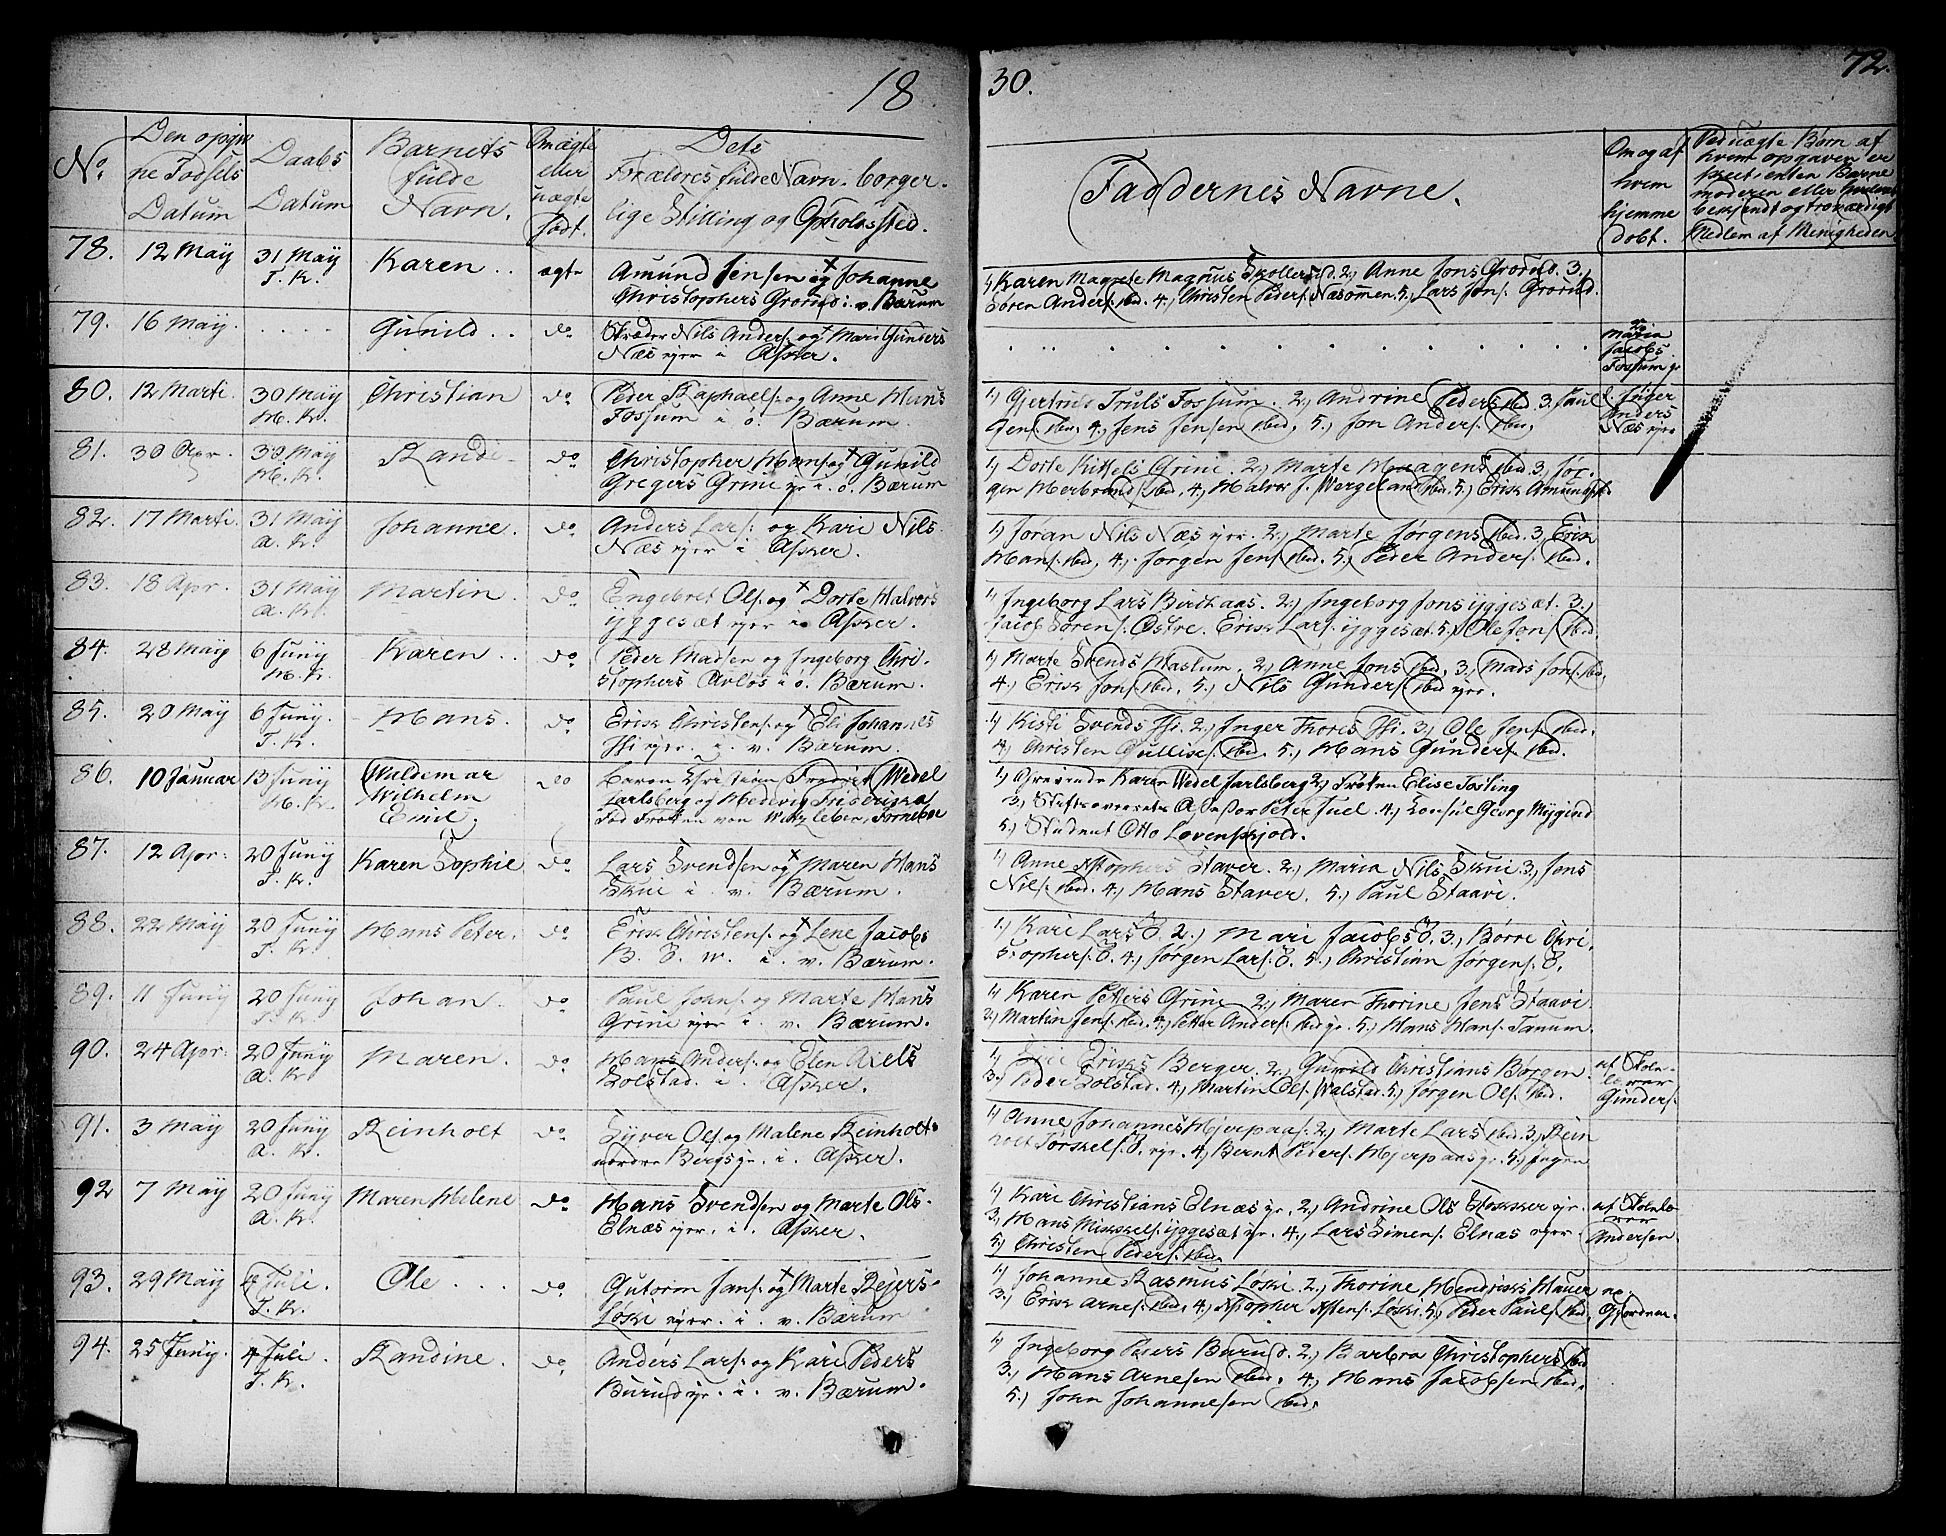 18
30.
72.
No.
Den opgiv
ne Fødsels
Datum
Daabs
Datum
Barnets
fulde
Navn.
Om ægte
eller
uægte
født.
Dets
Forældres fulde Navn, borger.
lige Stilling og Opholdssted.
Faddernes Navne.
Om og af
hvem
hjemme
døbt.
Ved uægte Børn af
hvem opgaven er
skeet enten Barne
moderen eller
bekjendt og troværdigt
Medlem af Menigheden
78. 12 May 31 May Karen . . ægte Amund Jensen og + Johanne
T. K. Christophers Grorud i v. Bærum
1, Karen Magrete Magnus Skollerud. 2, Anne Jons Grorud. 3.
Søren Anders. ibid. 4, Christen Peders. Næsomen. 5, Lars Jons. Grorud.
79. 16 May. . . . . . Gunild . . do Nils Anders. og + Mari Gunders
Næs ejer i Asker.
Maria
Jacobs
Fossum
2, Inger
Anders
Næs ejer
80. 12 Marti. 30 May Christian do Peder Raphaels. og Anne Hans
H. K. Fossum i ø. Bærum.
1, Gjertrud Truls Fossum. 2, Andrine Peders ibid. 3. Paul
Jens. ibid. 4, Jens Jensen ibid. 5, Jon Anders. ibid.
81. 30 Apr. 30 May Randi do Christopher Hans. og + Gunild
H. K. Gregers Grini ejer i ø. Bærum
1, Dorte Kittels Grini. 2, Marte Haagens ibid. 3, Jør.
gen Herbrand ibid. 4, Halvor J. Wergeland ibid. 5, Erik Amunds.
82. 17 Marti. 31 May Johanne. do Anders Lars. og Kari Nils
A. K. Næs ejer i Asker.
1, Joran Nils Næs ejer. 2, Marte Jørgens ibid. 3, Erik
Hans. ibid. 4, Jørgen Jens. ibid. 5, Peder Anders. ibid.
83. 18 Apr. 31 May Martin. do Engebret Ols. og + Dorte Halvors
A. K. Yggesæt ejer i Asker.
1, Ingeborg Lars Birdhaas. 2, Ingeborg Jons Yggesæt. 3,
Jacob Sørens. Østre. Erik Lars. Yggesæt. 5, Ole Jons. ibid.
84. 28 May 6 Juny Karen . . do Peder Madsen og Ingeborg Chri.
H. K. stophers Avløs i ø. Bærum.
1, Marte Svends Haslum. 2, Anne Jons ibid. 3, Mads Jons. ibid.
4, Erik Jons. ibid. 5, Nils Gunders. ibid ejer.
85. 20 May 6 Juny. Hans. do Erik Christens. og + Eli Johannes
T. K. Ihi ejer. i. v. Bærum.
1, Kisti Svends Ihi. 2, Inger Thores Ihi. 3, Ole Jens. ibid.
4, Christen Gulliks. ibid. 5, Hans Gunders. ibid.
86. 10 Januar 13 Juny Waldemar do Baron Christian Fredrik Wedel
H. K. Wilhelm Jarlsberg og Hedevig Friderikka
Emil. Fød Frøken von Witzleben, Fornebo
1, Grevinde Karen Wedel Jarlsberg 2, Frøken Elise Tosting
3, Stiftsoverrets Assessor Peter Juel. 4, Konsul Georg Mygind
5, Student Otto Lovenskjold.
87. 12 Apr. 20 Juny Karen Sophie do Lars Svendsen og + Maren Hans
T. K. Skui i. v. Bærum.
1, Anne Xstophers Staver. 2, Maria Nils Skui. 3, Jons
Nils. ibid. 4, Hans Staver. 5, Paul Staavi.
88. 22 May 20 Juny Hans Peter. do Erik Christens. og + Lene Jacobs
T. K. B. S. W. i. v. Bærum.
1, Kari Lars 2, Mari Jacobs 3, Børre Chri.
stophers. 4, Jørgen Lars. 5, Christian Jørgens.
89. 11 Juny 20 Juny Johan. do Paul Johns. og Marte Hans
T. K. Grini ejer i. v. Bærum.
1, Karen Petters Grini 2, Maren Thorine Jens Staavi
3, Martin Jens. ibid. 4, Petter Anders. ibid ejr. 5, Hans Hans. Tanum.
90. 24 Apr. 20 Juny Maren. do Hans Anders. og Elen Axels
A. K. Solstad. i. Asker.
1, Eriks Berger. 2, Gunild Christians Børgen.
3, Peder Solstad. 4, Martin Ols. Walstad. 5, Jørgen Ols. ibid.
af Skole
lærer
Gunders.
91. 3 May 20 Juny Reinholt do Syver Ols. og Malene Reinholt.
A. K. nordre Bergs ejr. i. Asker.
1, Anne Johannes Hjerpaas. 2, Marte Lars ibid. 3, Rein
holt Torkels. ejr. 4, Bernt Peders. Hjerpaas ejr. 5, Jørgen
92 7 May 20 Juny Maren Helene do Hans Svendsen og Marte Ols
A. K. Elnæs ejer. i. Asker.
1, Kari Christians Elnæs ejr. 2, Andrine Ols Stokker ejr.
3, Hans Mikkels. Yggesæt ejr. 4, Lars Simens. Elnæs ejer
5, Christen Peders. ibid.
af Skolelæ
rer
Andersen.
93. 29 May 4 Juli. Ole . . . do Gutorm Jans. og + Marte Rejers
T. K. Løkki ejer. i. v. Bærum
1, Johanne Rasmus Løkki. 2, Thorine Hendriks Hauer
3, Erik Arnes. ibid. 4, Xstopher Løkki. 5, Peder Pauls. ibid.
Gjordem.
94. 25 Juny. 4 Juli. Randine. do Anders Lars. og Kari Peders
T. K. Burud ejr. i. v. Bærum.
1, Ingeborg Peders Burud. 2, Barbra Christophers ibid
3, Hans Arnesen ibid. 4, Hans Jacobsen ibid.
5, John Johannesen ibid.